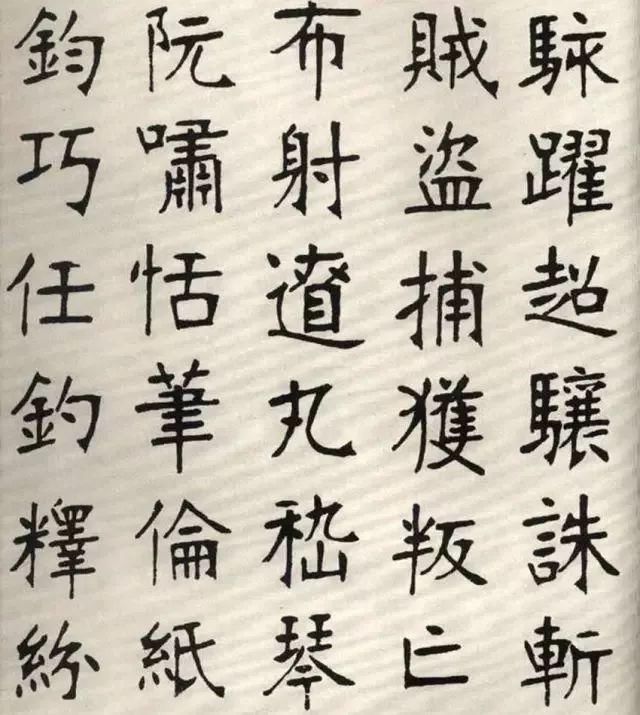 駭躍超驤誅斬
賊盜捕獲叛亡
布射遼丸嵇琴
阮嘯恬筆倫紙
鈞巧任釣釋紛